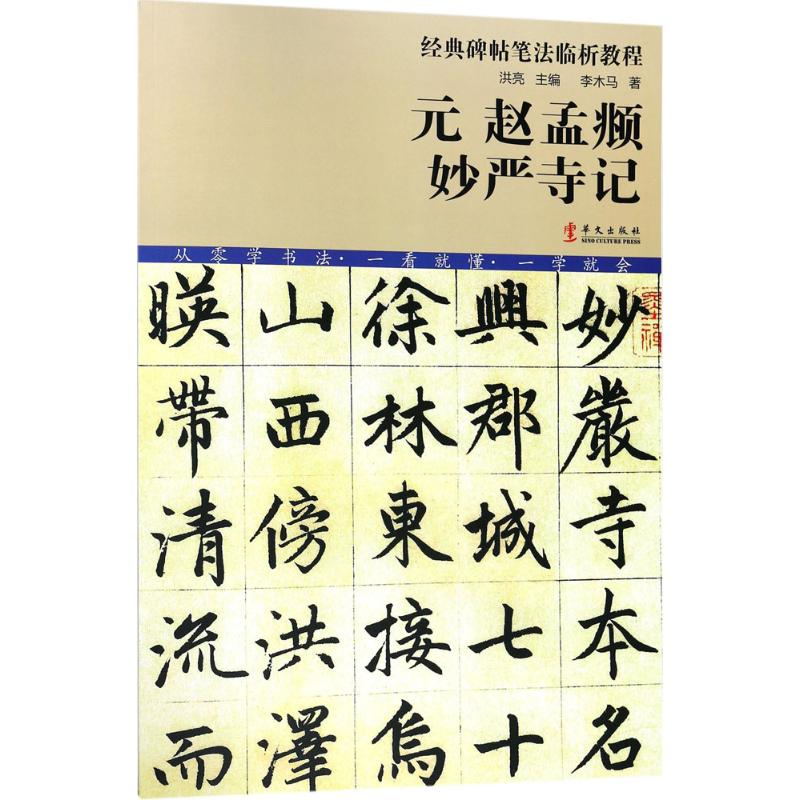 经典碑帖笔法临析教程
洪亮 主编 李木马 著
元 赵孟頫
妙严寺记
華文出版社
SINO CULTURE PRESS
从零学书法·一看就懂·一学就会
妙嚴寺本名
興郡城七十
徐林東接烏
山西傍洪澤
暎帶清流而